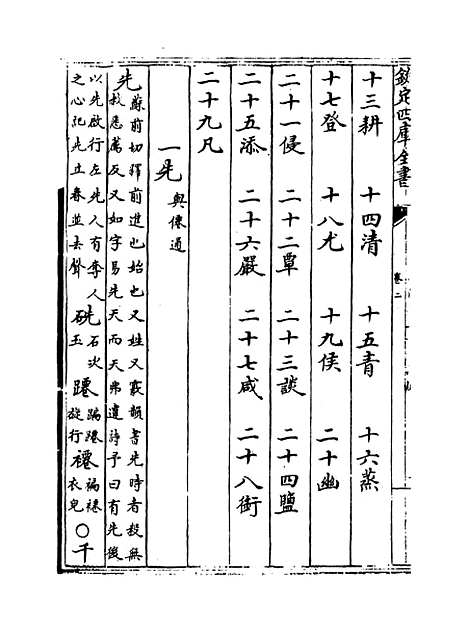 欽定四庫全書
卷二
十三耕 十四清 十五青 十六蒸
十七登 十八尤 十九侯 二十幽
二十一侵 二十二覃 二十三談 二十四鹽
二十五添 二十六嚴 二十七咸 二十八銜
二十九凡
一先 與僊通
先 蘇前切釋前進也始也又姓又霰韻書先時者殺無
赦悉薦反又如字易先天而天弗違詩予曰有先後
以先啟行左先人有奪人
之心記先立春並去聲 硑 石次
玉 躚 蹁躚
旋行 褼 褊褼
衣皃 ○千